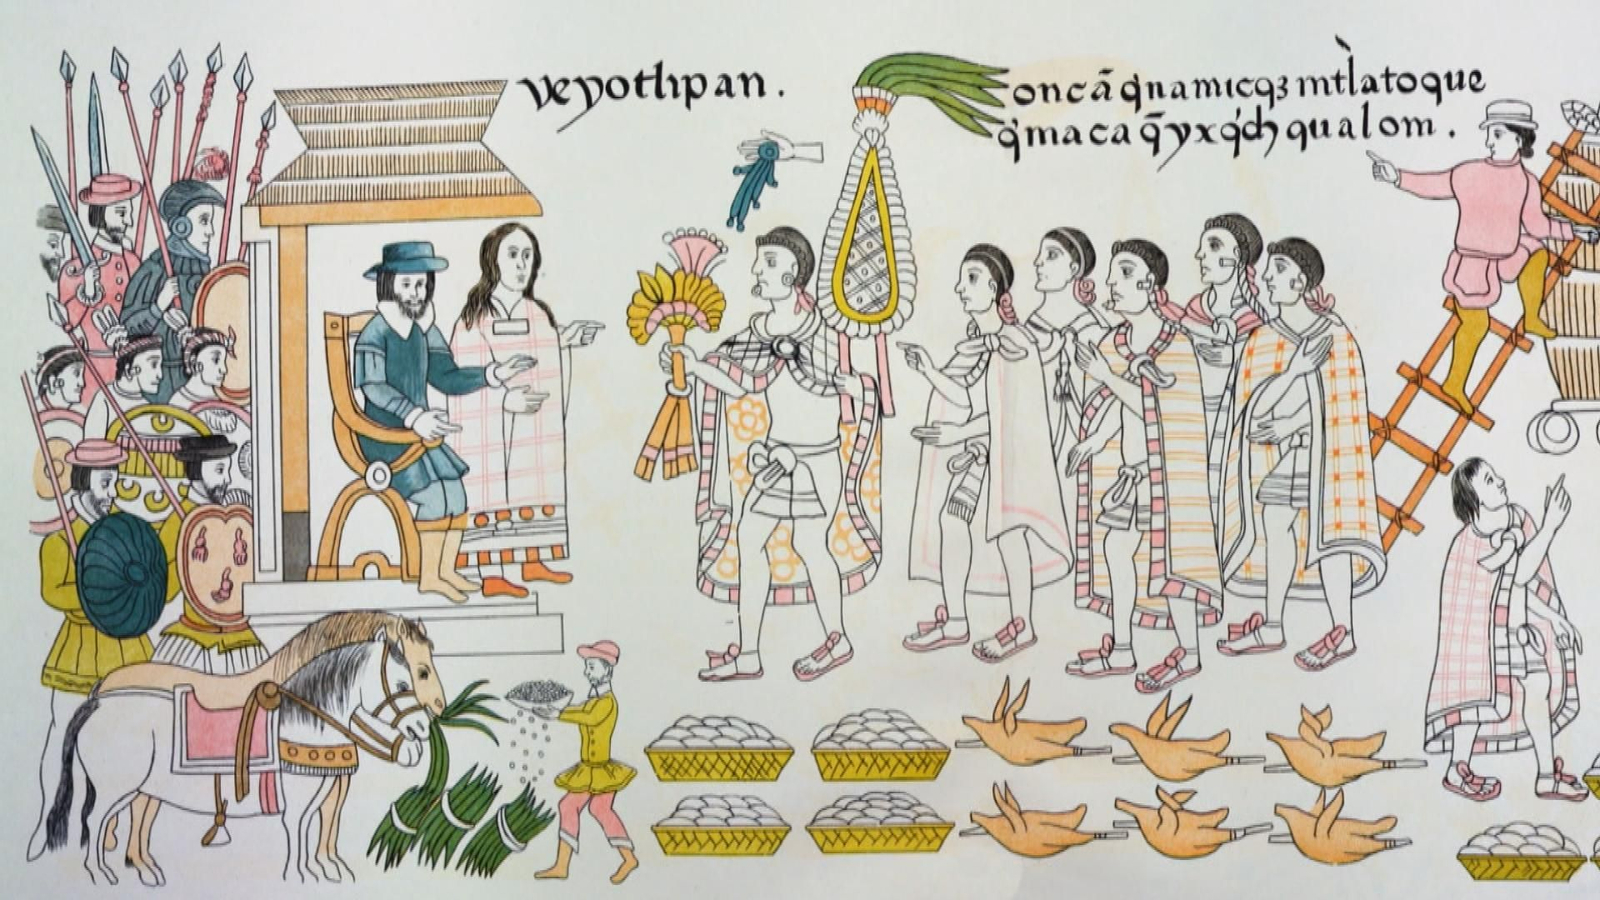 veyothpan.
oncã q̃namicqȝ mtlatoque
q̃maca q̃yxq̃ch qualom.